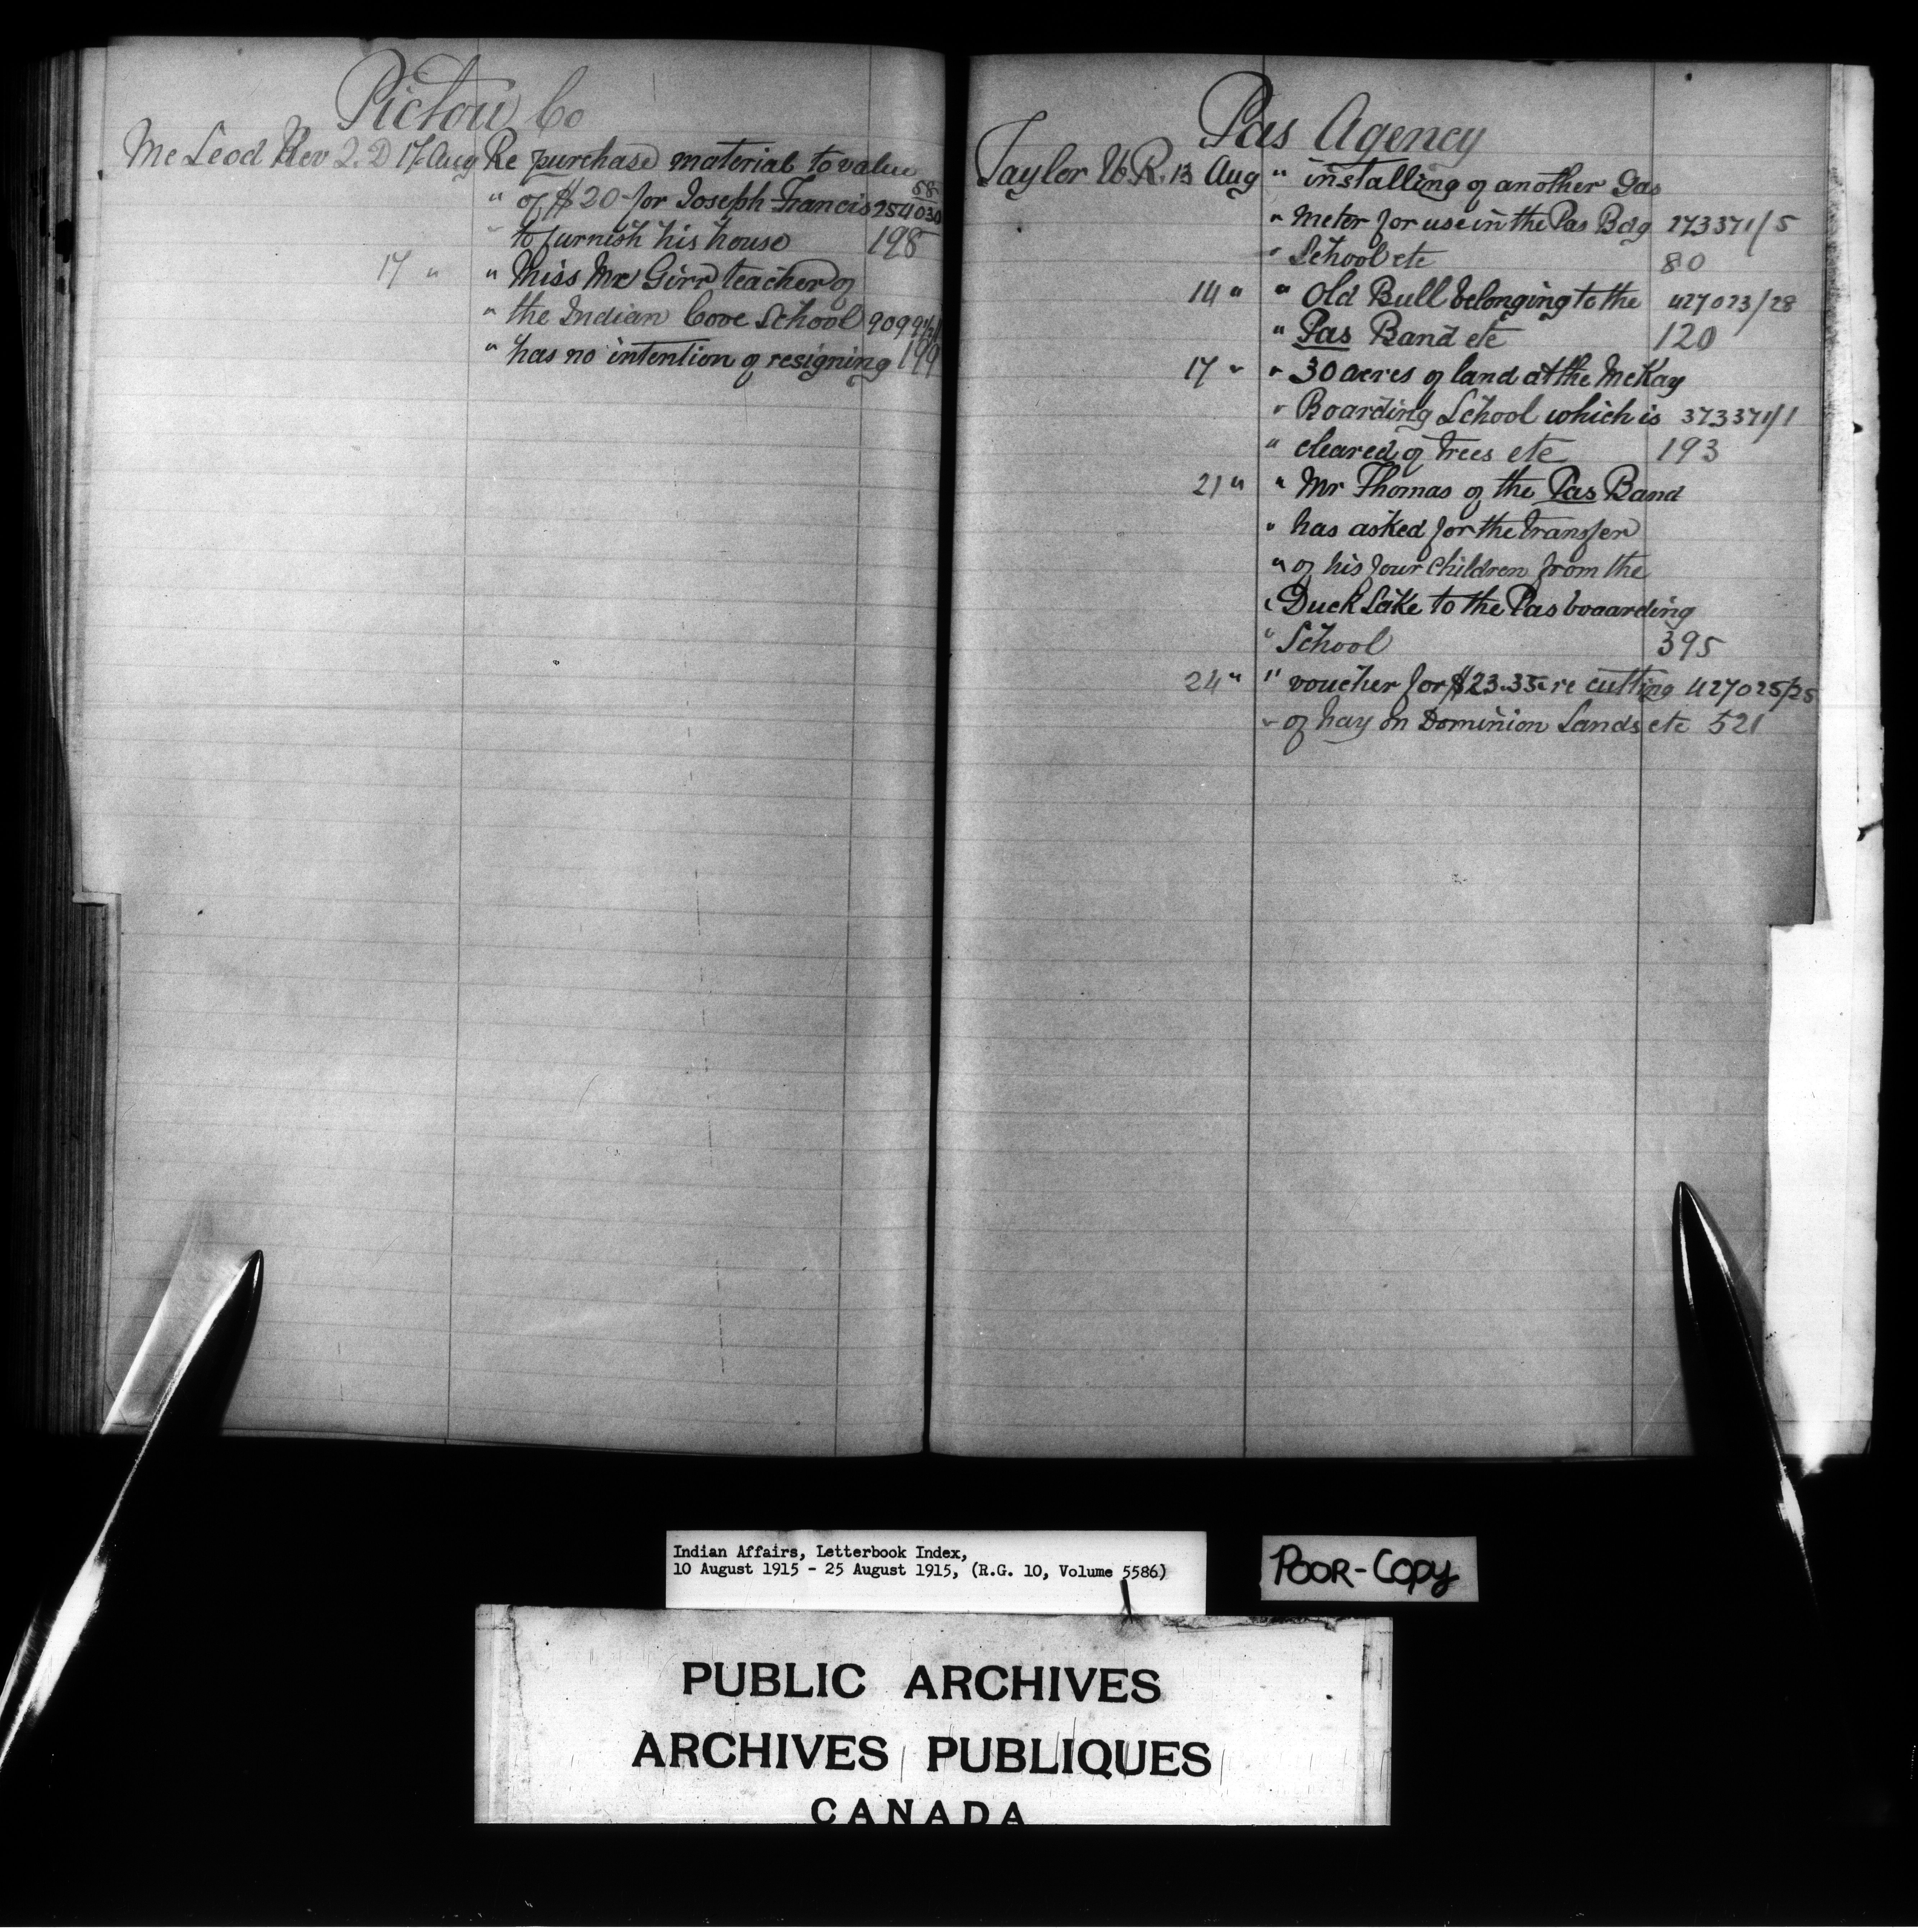 Pictou Co
McLeod Rev J. D 17 Aug Re purchase material to value
" of $20- for Joseph Francis 254030 58
" to furnish his house 198
17 " " Miss Mc Girr teacher of
" the Indian Cove School
" has no intention of resigning 199
Pas Agency
Taylor W. R. 13 Aug " installing of another Gas
" meter for use in the Pas Bdg 273371/5
" School etc 80
14 " " Old Bull belonging to the 427023/28
" Pas Band etc 120
17 " " 30 acres of land at the McKay
" Boarding School which is 373371/1
" cleared of trees etc 193
21 " " Mr Thomas of the Pas Band
" has asked for the transfer
" of his four children from the
" Duck Lake to the Pas boaarding
" School 395
24 " " voucher for $23.35 re cutting 427025/25
" of hay on Dominion Lands etc 521
Indian Affairs, Letterbook Index,
10 August 1915 - 25 August 1915, (R.G. 10, Volume 5586)
POOR-COPY
PUBLIC ARCHIVES
ARCHIVES PUBLIQUES
CANADA